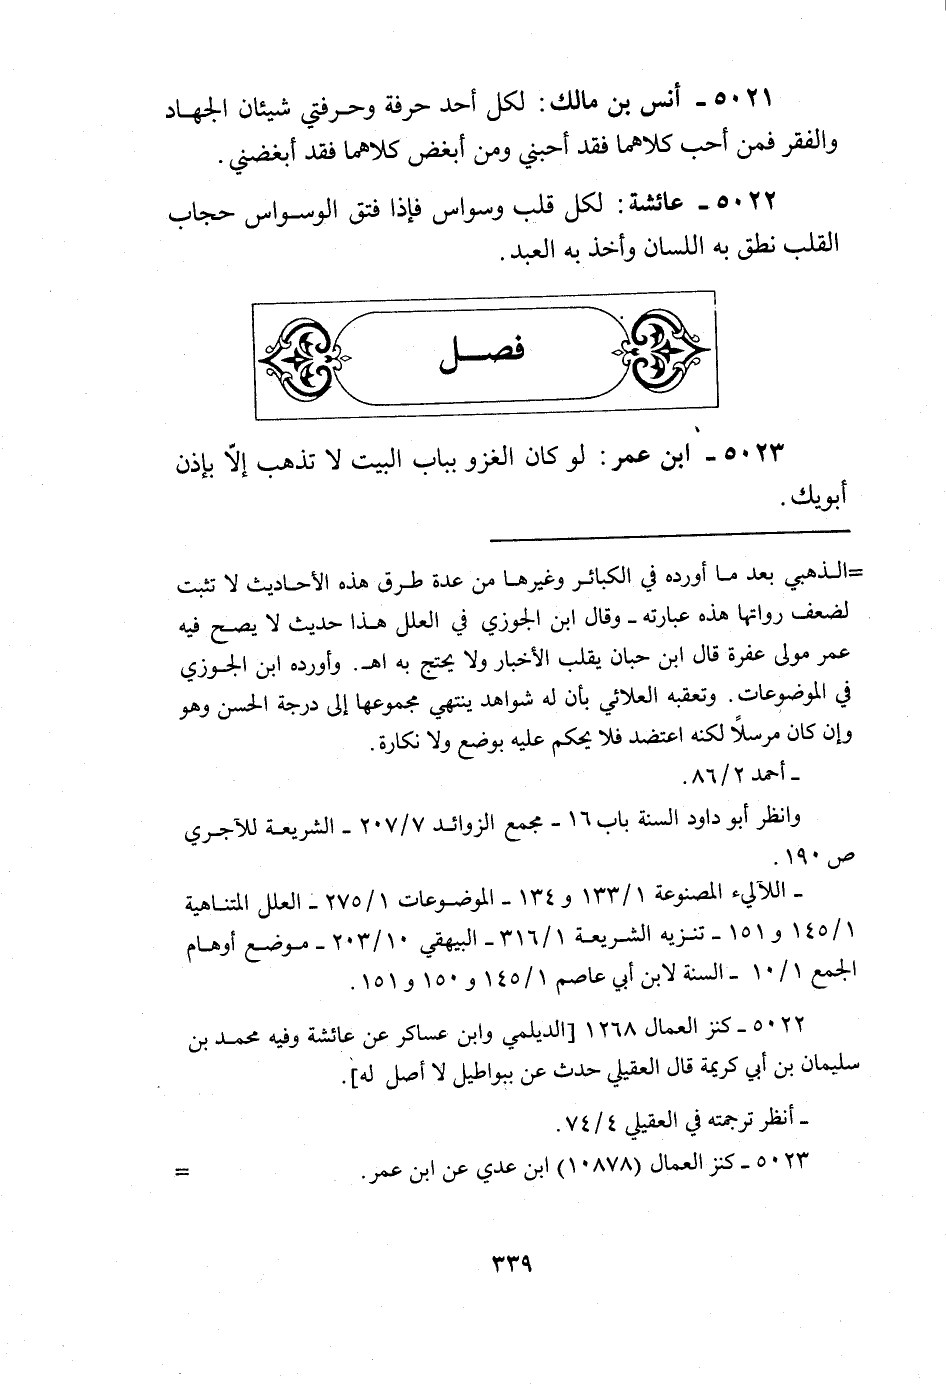 ٥٠٢١ ـ أنس بن مالك: لكل أحد حرفة وحرفتي شيئان الجهاد
والفقر فمن أحب كلاهما فقد أحبني ومن أبغض كلاهما فقد أبغضني.
٥٠٢٢ ـ عائشة: لكل قلب وسواس فإذا فتق الوسواس حجاب
القلب نطق به اللسان وأخذ به العبد.
فصل
٥٠٢٣ ـ ابن عمر: لو كان الغزو بباب البيت لا تذهب إلاّ بإذن
أبويك.
=الذهبي بعد ما أورده في الكبائر وغيرها من عدة طرق هذه الأحاديث لا تثبت
لضعف رواتها هذه عبارته ـ وقال ابن الجوزي في العلل هذا حديث لا يصح فيه
عمر مولى عفرة قال ابن حبان يقلب الأخبار ولا يحتج به اهـ. وأورده ابن الجوزي
في الموضوعات. وتعقبه العلائي بأن له شواهد ينتهي مجموعها إلى درجة الحسن وهو
وإن كان مرسلاً لكنه اعتضد فلا يحكم عليه بوضع ولا نكارة.
ـ أحمد ٨٦/٢.
وانظر أبو داود السنة باب ١٦ ـ مجمع الزوائد ٢٠٧/٧ ـ الشريعة للآجري
ص ١٩٠.
ـ اللآليء المصنوعة ١٣٣/١ و ١٣٤ ـ الموضوعات ٢٧٥/١ ـ العلل المتناهية
١٤٥/١ و ١٥١ ـ تنزيه الشريعة ٣١٦/١ ـ البيهقي ٢٠٣/١٠ ـ موضع أوهام
الجمع ١٠/١ ـ السنة لابن أبي عاصم ١٤٥/١ و ١٥٠ و ١٥١.
٥٠٢٢ ـ كنز العمال ١٢٦٨ [الديلمي وابن عساكر عن عائشة وفيه محمد بن
سليمان بن أبي كريمة قال العقيلي حدث عن ببواطيل لا أصل له].
ـ أنظر ترجمته في العقيلي ٧٤/٤.
٥٠٢٣ ـ كنز العمال (١٠٨٧٨) ابن عدي عن ابن عمر. =
٣٣٩